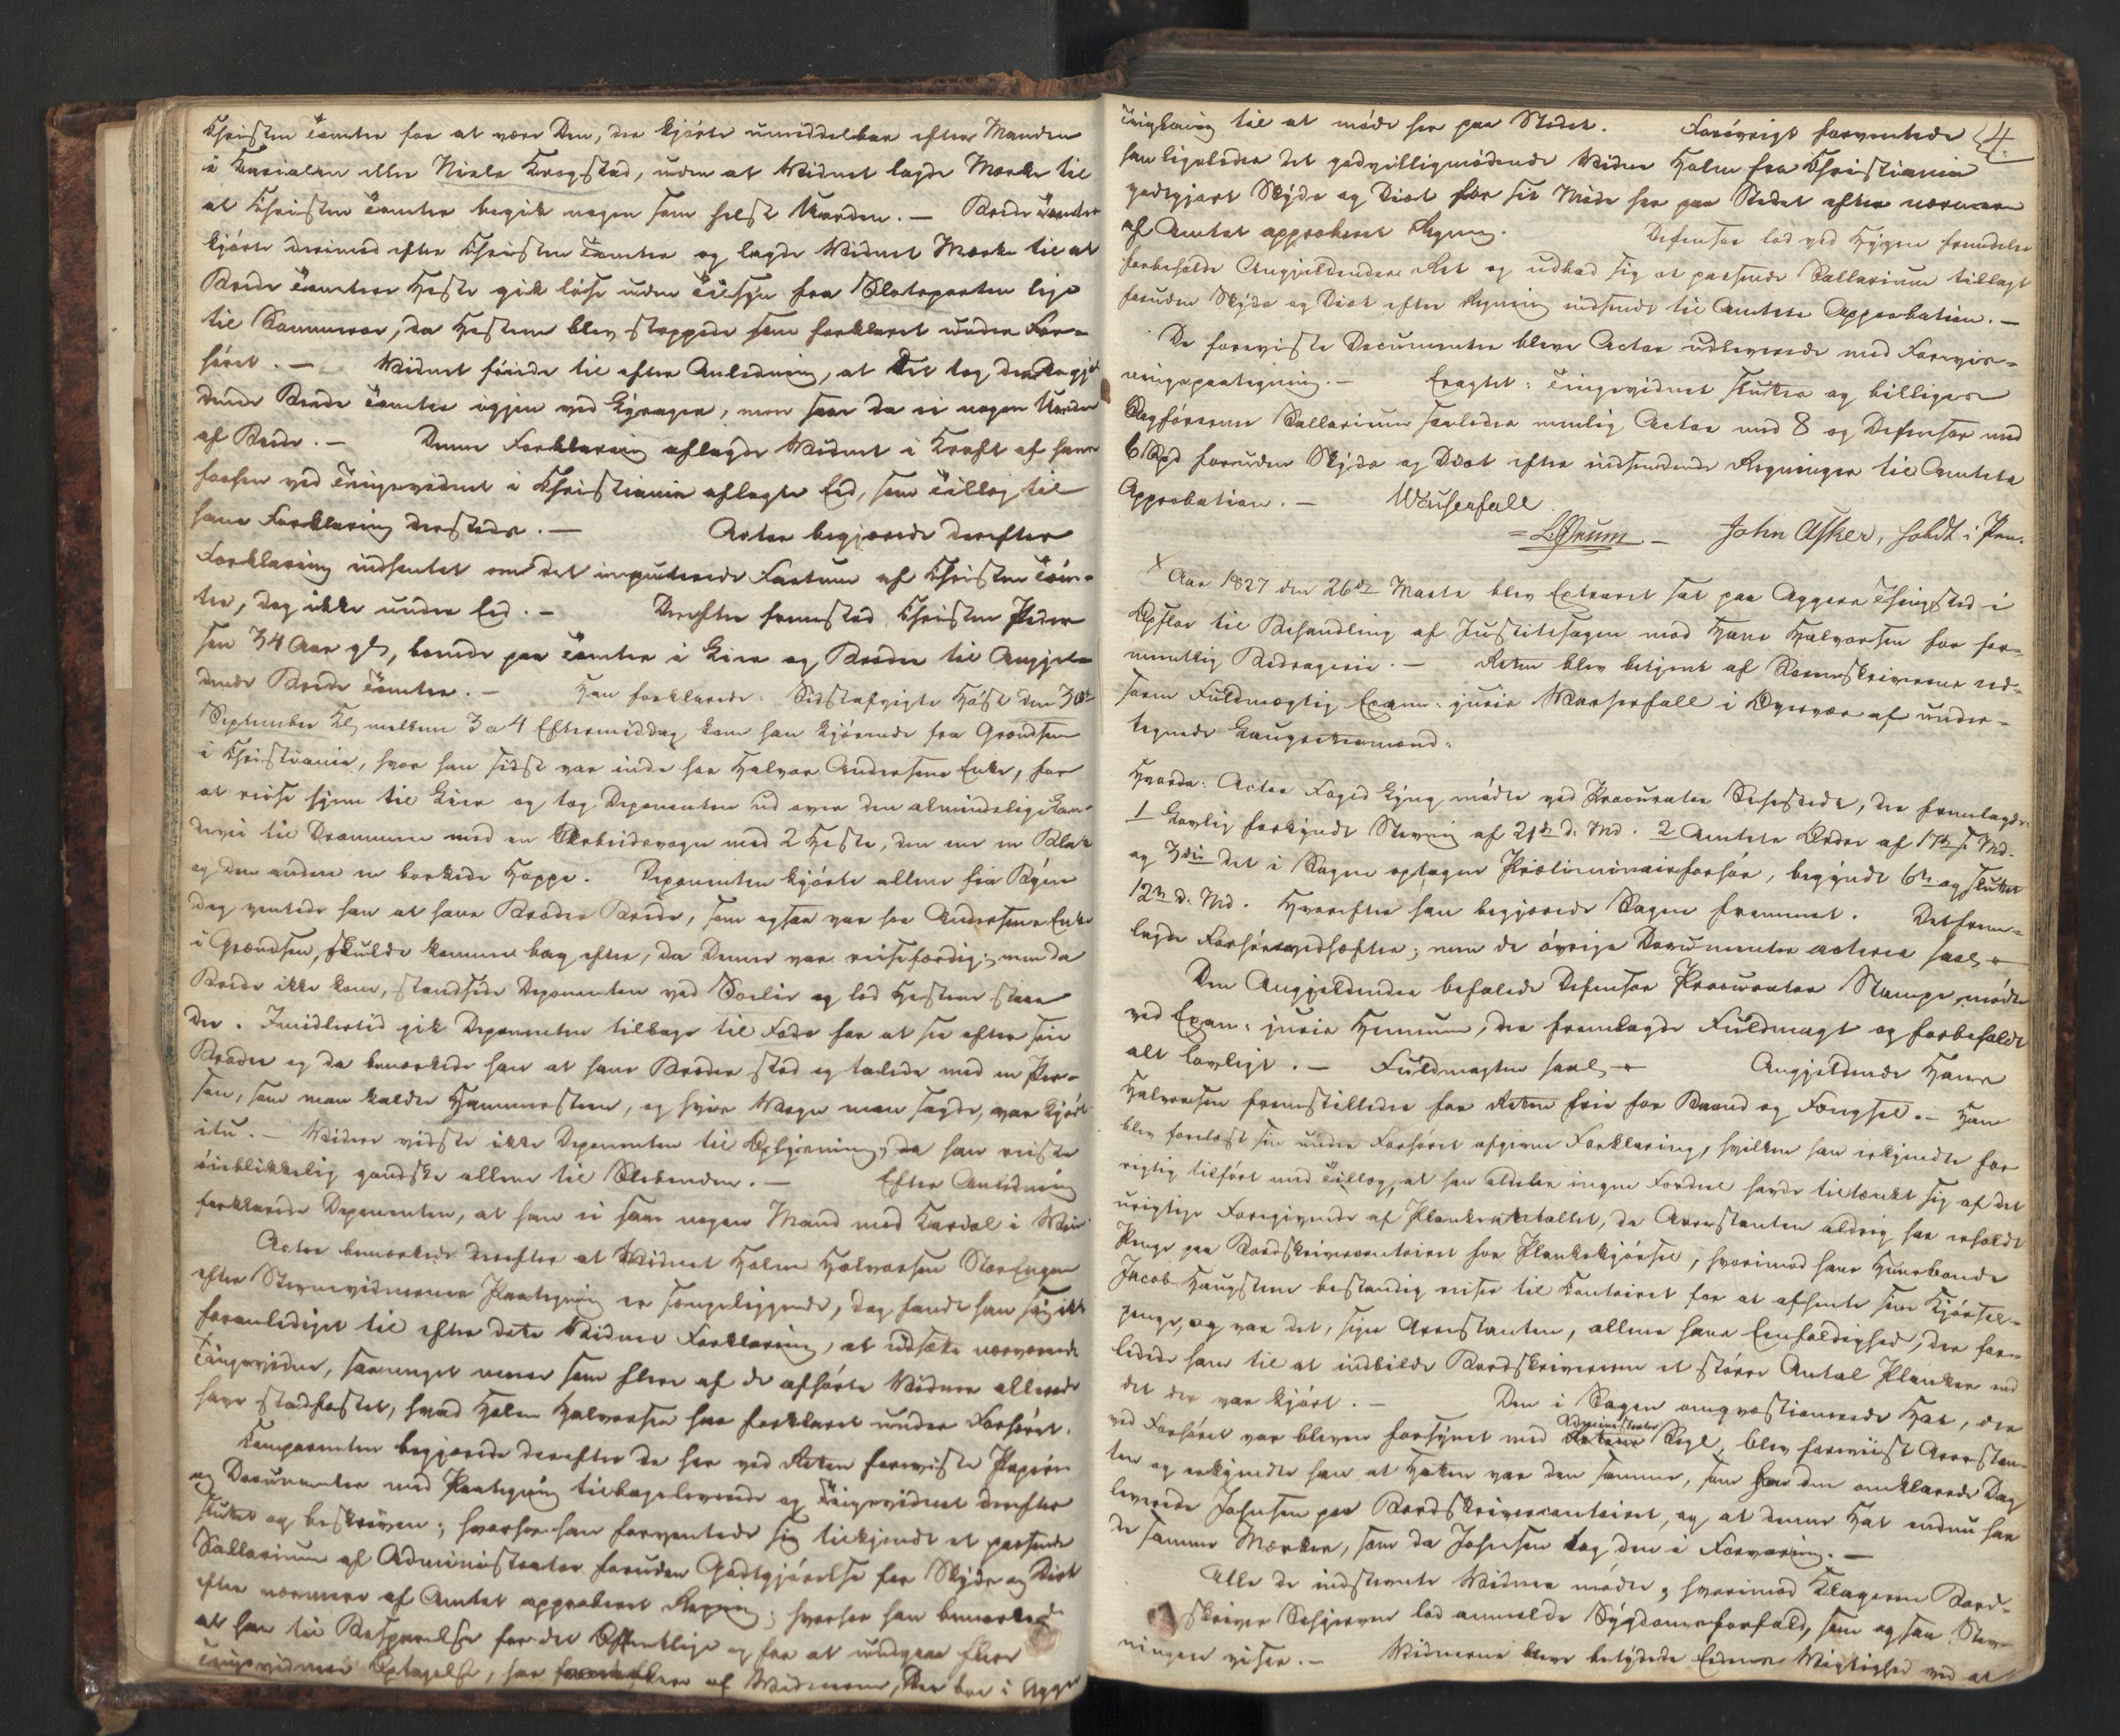 Christen Tømter for at være Den, der kjørte umiddelbar efter Manden
i Karialen eller Niels Krogstad, uden at Vidnet lagde Mærke til
at Christen Tømter begik nogen som helst Uorden. — Brede Tømter
kjørte derimod efter Christen Tømter og lagde Vidnet Mærke til at
Brede Tømters Heste gik løse uden Tilsyn fra lige
til, da Hestene blev stoppede som forklaret under For-
høret. — Vidnet føiede til efter Anledning, at Det tog den Angjel-
dende Brede Tømter igjen ved, men saae da ei nogen Uorden
af Brede. — Denne Forklaring aflagde Vidnet i Kraft af hans
forhen ved Tingsvidnet i Christiania aflagte Eed, som Tillæg til
hans Forklaring dersteds. — Actor begjærede derefter
Forklaring indhentet om det imputerede Factum af Christen Tøm-
ter, dog ikke under Eed. — Derefter fremstod Christen Peder-
sen 34 Aar gl, boende paa Tømter i Lier og Broder til Angjel-
dende Brede Tømter. — Han forklarede: Sidstafvigte Høst den 30te
September Kl mellem 3 a 4 Eftermiddag kom han kjørende fra Grændsen
i Christiania, hvor han sidst var inde hos Halvor Andersens Enke, for
at reise hjem til Lier og tog Deponenten ud over den almindelige Lan-
devei til Drammen med en Arbeidsvogn med 2 Heste, den ene en Blak
og den anden en borket Hoppe. Deponenten kjørte allene fra Byen
dog ventede han at hans Broder Brede, som ogsaa var hos Andersens Enke
i Grændsen, skulde komme bag efter, da Denne var reisefærdig; men da
Brede ikke kom, standsede Deponenten ved og lod Hestene staae
der. Imidlertid gik Deponenten tilbage til Fods for at see efter sin
Broder og da bemærkede han at hans Broder stod og talede med en Per-
son, som man kaldte Hammersteen, og hvis Vogn man sagde, var kjørt
itu. — Videre vidste ikke Deponenten til Oplysning, da han reiste
øieblikkelig gandske allene til Slebenden. — Efter Anledning
forklarede Deponenten, at han ei saae nogen Mand med Kariol i Veien.
Actor bemærkede derefter at Vidnet Holm Halvorsen
efter Stevnevidnernes Paategning er sengeliggende, dog fandt han sig ikke
foranlediget til efter dette Vidnes Forklaring, at udsætte nærværende
Tingsvidne, saameget mere som flere af de afhørte Vidner allerede
have stadfæstet, hvad Holm Halvorsen har forklaret under Forhøret.
Comparenten begjærede derefter de her ved Retten foreviste Papirer
og Documenter med Paategning tilbageleverede og Tingsvidnet derefter
sluttet og beskreven; hvorhos han forventede sig tilkjendt et passende
Sallarium af Administrator foruden Godtgjørelse for Skyds og Diæt
efter nærmere af Amtet approberet Regning; hvorhos han bemærkede
at han til Besparelse for det Offentlige og for at undgaae flere
Tingsvidners Optagelse, har flere af Vidnerne, Der boe i Agger
4.
til at møde her paa Stedet. Forøvrigt forventede
han ligeledes det godvilligmødende Vidne Holm fra Christiania
godtgjort Skyds og Diæt for sit Møde her paa Stedet efter nærmere
af Amtet approberet Regning. Defensor lod ved Hygen fremdeles
forbeholde Angjeldendes Ret og udbad sig et passende Sallarium tillagt
foruden Skyds og Diæt efter Regning indsendt til Amtets Approbation. —
De foreviste Documenter bleve Actor udleverede med Forevis-
ningspaategning. — Eragtet: Tingsvidnet sluttes og billiges
Sagførernes Sallarium saaledes nemlig Actor med 8 og Defensor med
6 Spd foruden Skyds og Diæt efter indsendende Regninger til Amtets
Approbation. — Wauserfall
John Asker, holdt i Pen.
Aar 1827 den 26de Marts blev Extraret sat paa Aggers Thingsted i
Opsloe til Behandling af Justitssagen mod Hans Halvorsen for for-
meentlig Bedragerie. — Retten blev betjent af Sorenskriverens ed-
svorne Fuldmægtig Exam: juris Wauserfall i Overvær af under-
tegnede Laugrettesmænd:
Hvorda: Actor Foged Lyng mødte ved Procurator Sehestedt, der fremlagde:
1 Lovlig forkyndt Stevning af 21de d: Md. 2 Amtets Ordre af 17de s. Md.
og 3die det i Sagen optagne Præliminairforhør, begyndt 6te og sluttet
12te d: Md. Hvorefter han begjærede Sagen fremmet. Det frem-
lagte Forhør vedhæftes; men de øvrige Documenter acteres saal
Den Angjeldendes befalede Defensor Procurator Stampe mødte
ved Exam: juris, der fremlagde Fuldmagt og forbeholdt
alt lovligt. — Fuldmagten saal Angjeldende Hans
Halvorsen fremstilledes for Retten frie for Baand og Fængsel. — Han
blev forelæst sin under Forhøret afgivne Forklaring, hvilken han erkjendte for
rigtig tilført med Tillæg, at han aldeles ingen Fordeel havde tiltænkt sig af det
urigtige Foregivende af Plankeantallet, da Arrestanten aldrig har erholdt
Penge paa Bordskrivercontoiret for Plankekjørsel, hvorimod hans Huusbonde
Jacob Haugsteen bestandig reiser til Contoiret for at afhente sine Kjørsel-
penge, og var det, siger Arrestanten, allene hans Eenfoldighed, der for-
ledede ham til at indbilde Bordskriveren et større Antal Planker end
det der var kjørt. — Den i Sagen omqvæstionerede Hat, der
ved Forhøret var bleven forsynet med Administrators Segl, blev foreviist Arrestan-
ten og erkjendte han at Hatten var den samme, som han den omklarede Dag
leverede Johnsen paa Bordskrivercontoiret, og at denne Hat endnu har
de samme Mærker, som da Johnsen tog den i Forvaring. —
Alle de indstevnte Vidner mødte; hvorimod Klageren Bord-
skriver lod anmelde Sygdomsforfald, som ogsaa Stev-
ningen viser. — Vidnerne bleve betydede Eedens Vigtighed ved at